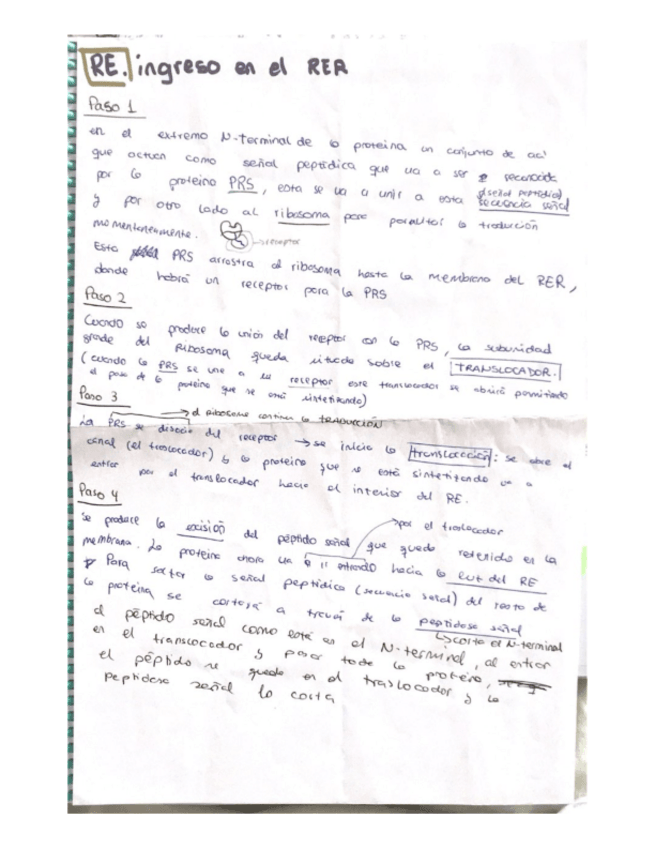 RE. ingreso en el RER
Paso 1
en el extremo N-terminal de la proteina un conjunto de aa'
que actuan como señal peptidica que va a ser reconocida
por la proteina PRS, esta se va a unir a esta secuencia señal
(señal peptidica)
y por otro lado al ribosoma para paralizar la traducción
momentaneamente.
receptor
Esta PRS arrastra al ribosoma hasta la membrana del RER,
donde habrá un receptor para la PRS
Paso 2
Cuando se produce la unión del receptor con la PRS, la subunidad
grade del Ribosoma queda situada sobre el TRANSLOCADOR.
(cuando la PRS se une a su receptor este translocador se abrirá permitiendo
el paso de la proteina que se está sintetizando)
Paso 3
el ribosoma continua la traducción
La PRS se disocia del receptor → se inicia la translocación: se abre el
canal (el traslocador) y la proteina que se está sintetizando va a
entrar por el translocador hacia el interior del RE.
Paso 4
→ por el traslocador
Se produce la escisión del péptido señal que queda retenido en la
membrana. La proteina ahora va a ir entrando hacia la luz del RE
Para soltar la señal peptidica (secuencia señal) del resto de
la proteina se cortará a través de la peptidasa señal
↳ corta el N-terminal
el péptido señal como está en el N-terminal, al entrar
en el translocador y pasar toda la proteina,
el péptido se queda en el traslocador y la
peptidasa señal lo corta